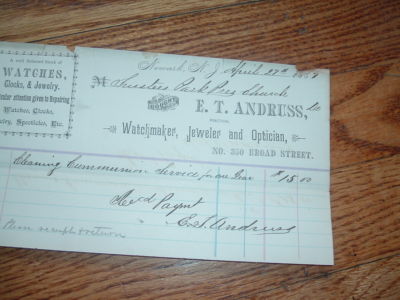 A well Selected Stock of
WATCHES,
Clocks, & Jewelry.
attention given to Repairing
Watches, Clocks,
Spectacles, Etc.
Newark, N. J. April 27th
M Trustees Park Pres Church
BOUGHT
E. T. ANDRUSS, Dr
Watchmaker, Jeweler and Optician,
NO. 350 BROAD STREET.
Cleaning Communion Service for one Year $15.00
Rec'd Paymt
E. T. Andruss
Please receipt & return